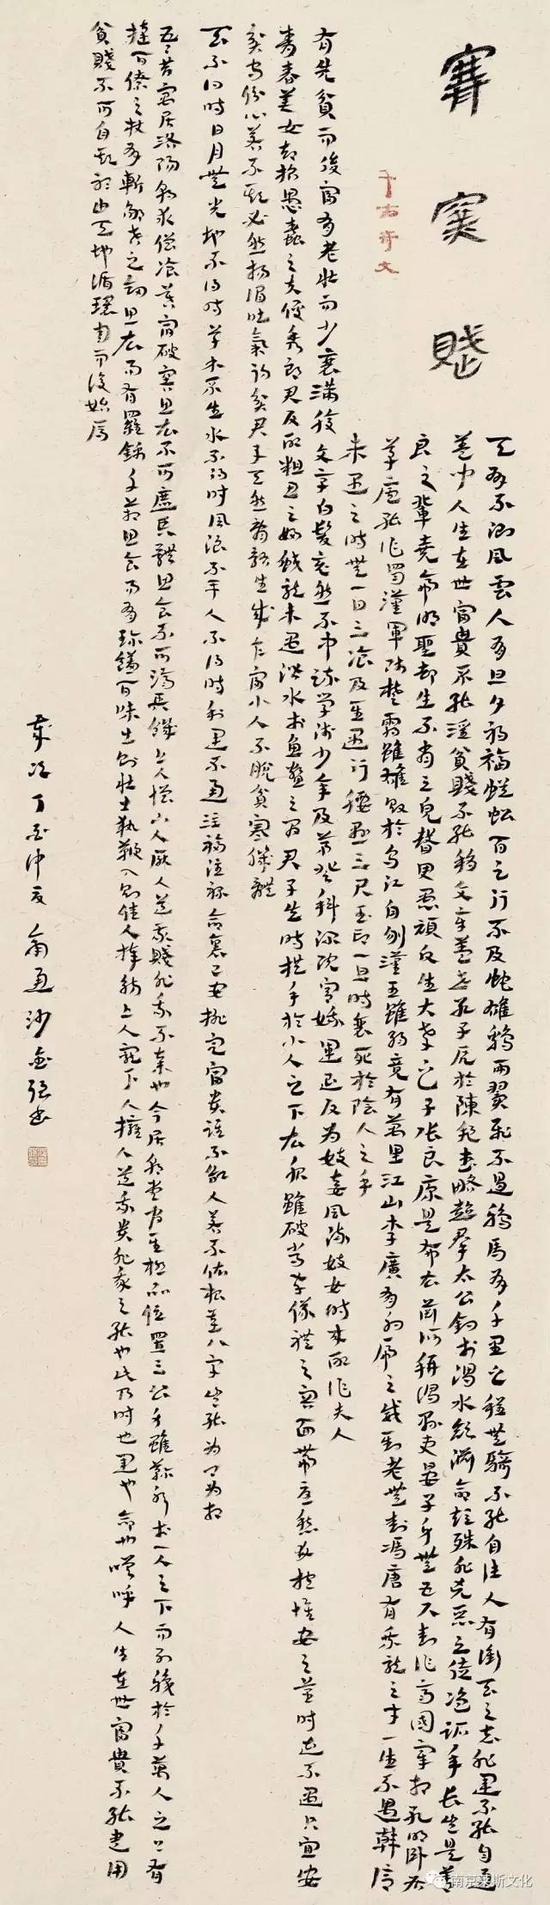 寒窑賦
千古奇文
天有不测風雲人有旦夕禍福蜈蚣百足行不及蛇雄鷄兩翼飛不過鴉馬有千里之程無騎不能自往人有衝天之志非運不能自通
蓋聞人生在世富貴不能淫貧賤不能移文章蓋世孔子厄於陳邦武略超群太公釣於渭水顏淵命短殊非凶惡之徒盗跖年長豈是善
良之輩堯帝明聖却生不肖之兒瞽叟愚頑反生大孝之子張良原是布衣蕭何稱謂縣吏晏子身無五尺封作齊國宰相孔明卧居
草廬能作蜀漢軍師楚霸雖雄敗於烏江自刎漢王雖弱竟有萬里江山李廣有射虎之威到老無封馮唐有乘龍之才一生不遇韓信
未遇之時無一日三飡及至遇行腰懸三尺玉印一旦時衰死於陰人之手
有先貧而後富有老壯而少衰滿腹文章白髮竟然不中疏學淺少年及第登科深院宮娥運退反為妓妾風流妓女時來配作夫人
青春美女却招愚蠢之夫俊秀郎君反配粗丑之婦蛟龍未遇潜水於魚鱉之間君子失時拱手於小人之下衣服雖破常存儀禮之容面帶憂愁每抱懷安之量時遭不遇只宜安
貧守份心若不欺必然揚眉吐氣初貧君子天然骨骼生成乍富小人不脫貧寒肌體
天不得時日月無光地不得時草木不生水不得時風浪不平人不得時利運不通注福注祿命裏已安排定富貴誰不欲人若不依根基八字豈能為卿為相
吾昔寓居洛陽朝求僧飡暮宿破窑思衣不可遮其體思食不可濟其饑上人憎下人厭人道我賤非我不棄也今居朝堂官至極品位置三公身雖鞠躬於一人之下而列職於千萬人之上有
撻百僚之杖有斬鄙吝之劍思衣而有羅錦千箱思食而有珍饈百味出則壯士執鞭入則佳人捧觴上人寵下人擁人道我貴非我之能也此乃時也運也命也嗟呼人生在世富貴不能盡用
貧賤不可自欺聽由天地循環周而復始焉
歲次丁酉仲夏南通沙金强書
南京莱斯文化